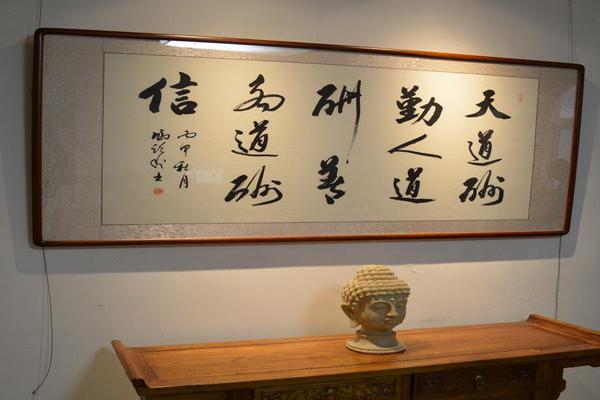 天道酬
勤人道
酬善
商道酬
信
丙申秋月